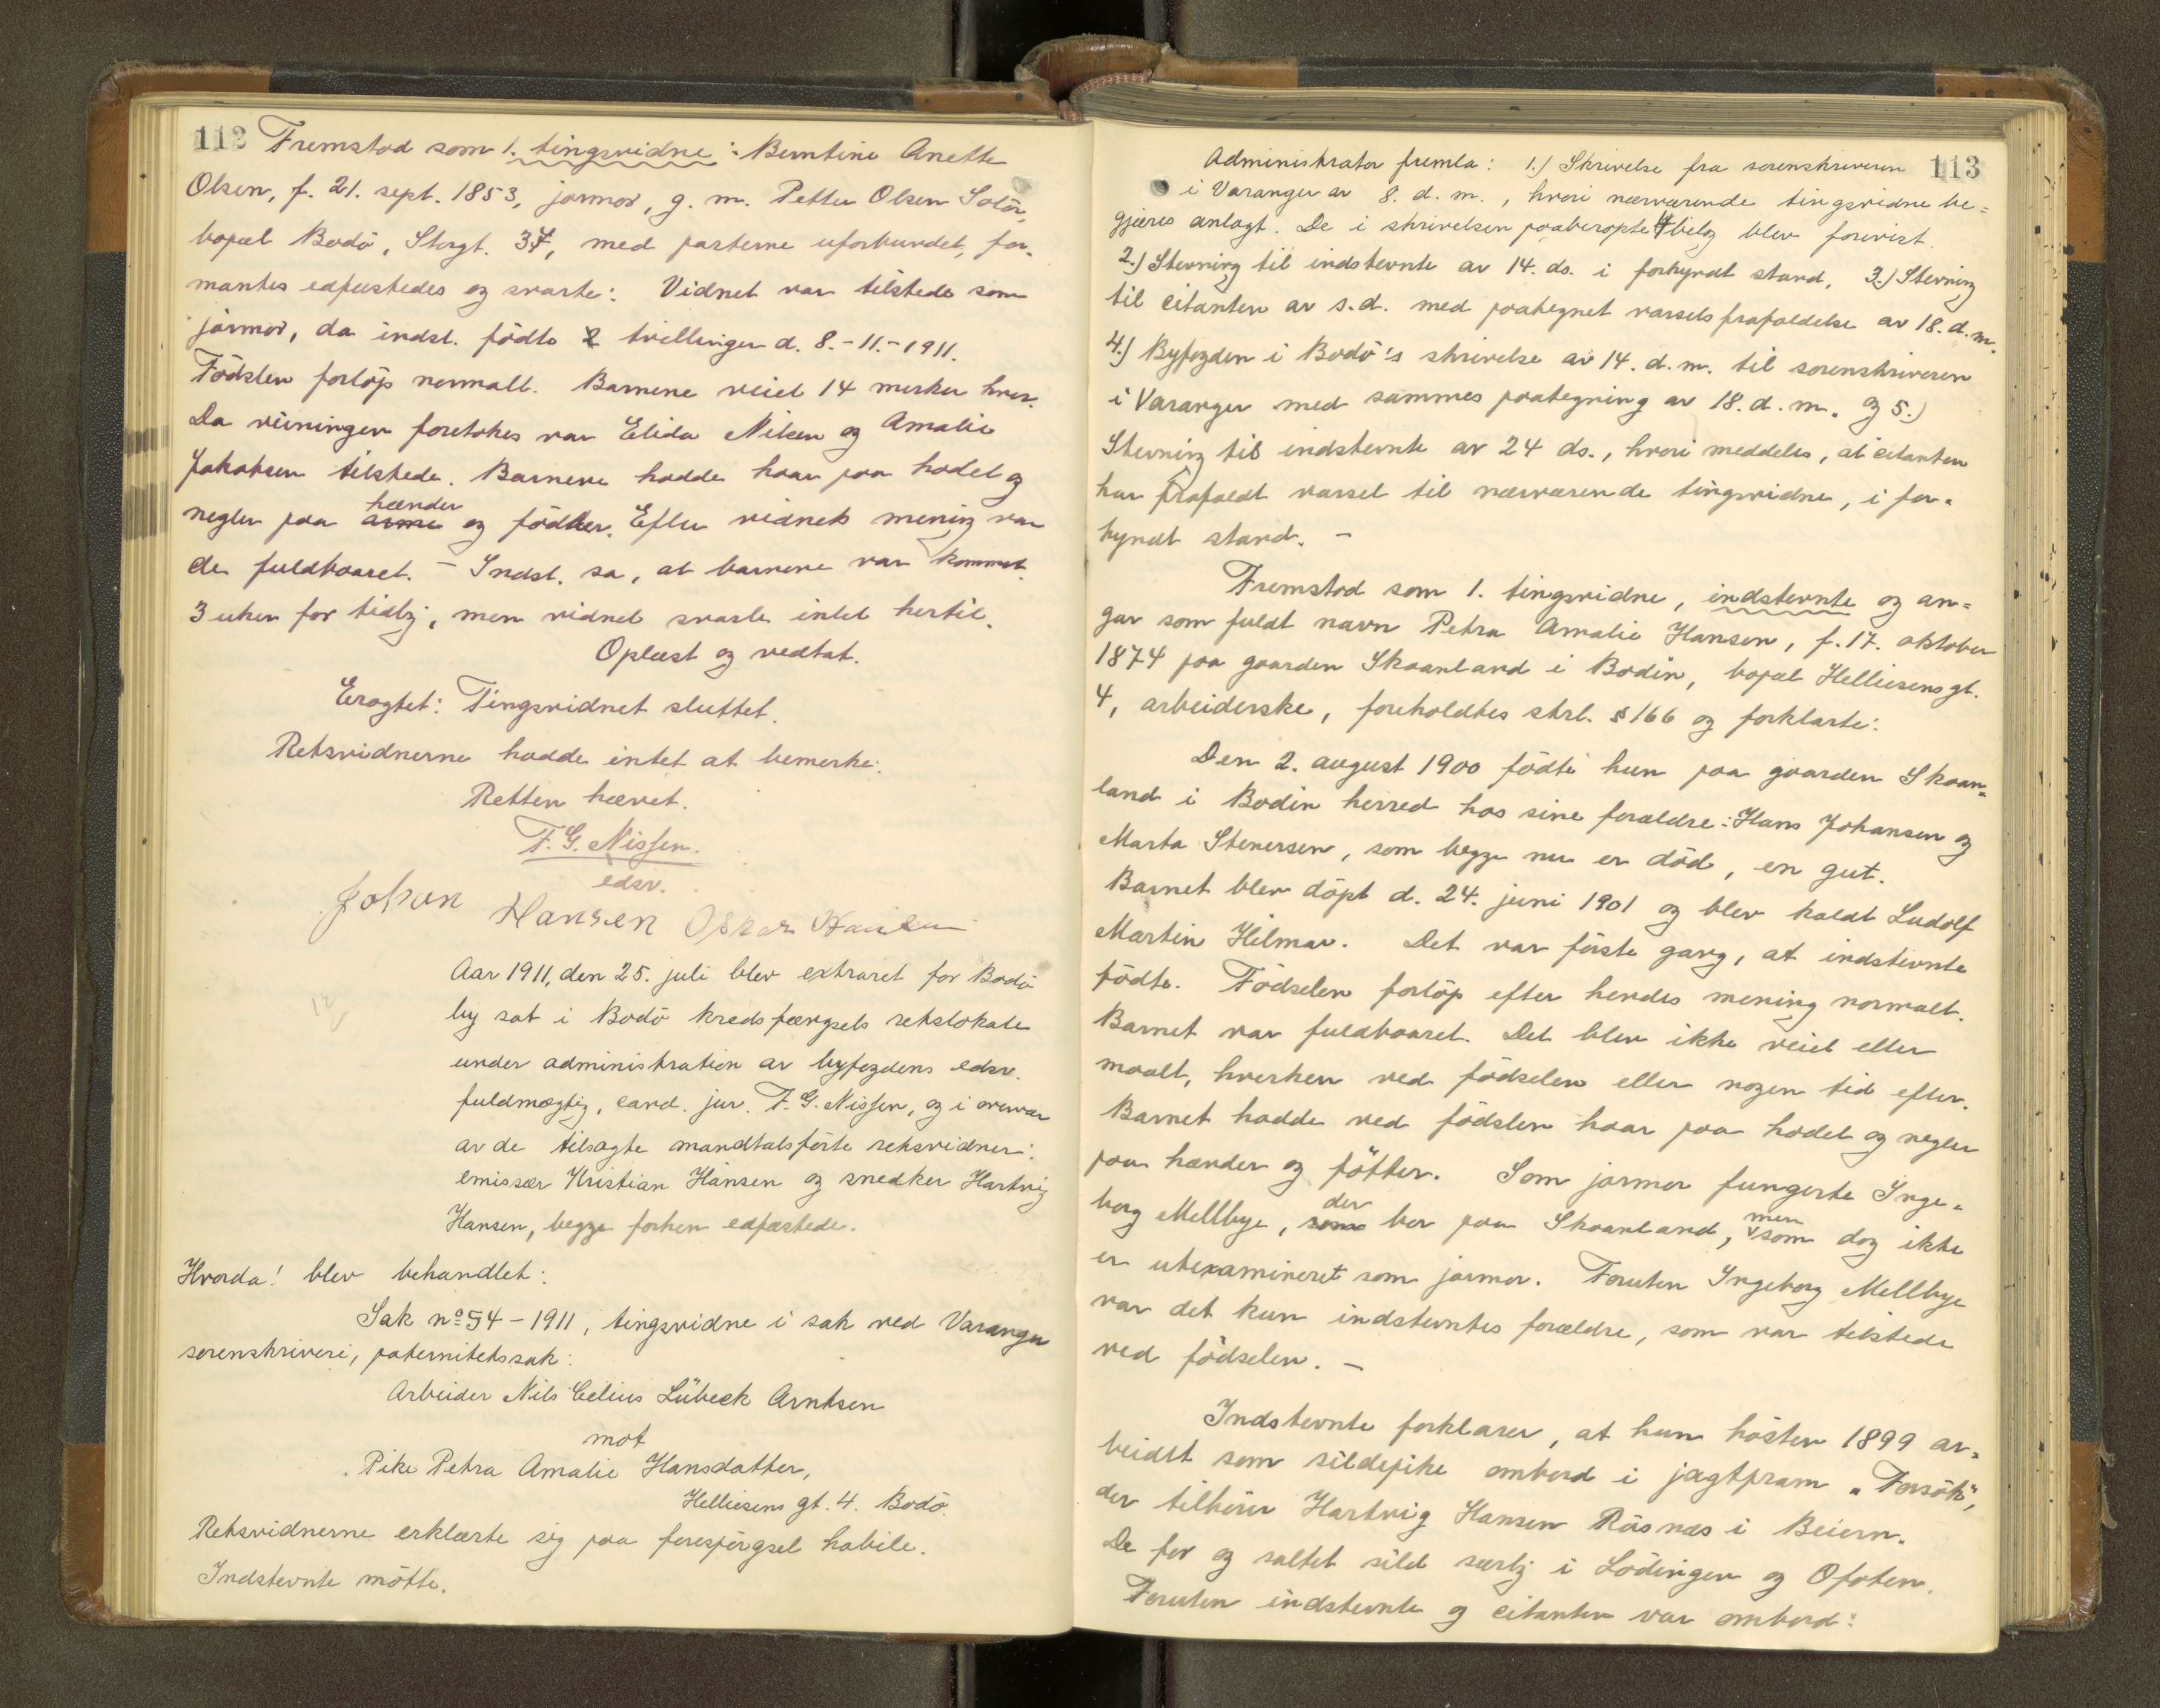 112
Fremstod som 1. tingsvidne: Berntine Anette
Olsen, f. 21. sept. 1853, jormor, g. m. Petter Olsen Solör,
bopæl Bodö, Storgt. 37, med parterne uforbundet, for-
mantes edfæstedes og svarte: Vidnet var tilstede som
jormor, da indst. födte 2 tvillinger d. 8.-11.-1911.
Födslen forlöp normalt. Barnene veiet 14 merker hver.
Da veiningen foretokes var Elida Nilsen og Amalie
Jakobsen tilstede. Barnene hadde haar paa hodet og
negler paa arme hænder og födder. Efter vidnets mening var
de fuldbaaret. – Indst. sa, at barnene var kommet
3 uker for tidlig, men vidnet svarte intet hertil.
Oplæst og vedtat.
Eragtet: Tingsvidnet sluttet.
Retsvidnerne hadde intet at bemerke.
Retten hævet.
F. G. Nissen.
edsv.
Johan Hansen Oskar
Aar 1911, den 25. juli blev extraret for Bodö
by sat i Bodö kredsfængsels retslokale
under administration av byfogdens edsv.
fuldmægtig, cand. jur. F. G. Nissen, og i overvær
av de tilsagte mandtalsförte retsvidner:
emissær Kristian Hansen og snedker Hartvig
Hansen, begge forhen edfæstede.
Hvorda! blev behandlet:
Sak nº 54 – 1911, tingsvidne i sak ved Varanger
sorenskriveri, paternitetssak:
Arbeider Nils Celius Lübeck Arntsen
mot
Pike Petra Amalie Hansdatter,
Helliesens gt. 4. Bodö.
Retsvidnerne erklærte sig paa forespörgsel habile.
Indstevnte mötte.
113
Administrator fremla: 1.) Skrivelse fra sorenskriveren
i Varanger av 8. d. m., hvori nærværende tingsvidne be=
gjæres anlagt. De i skrivelsen paaberopte 4 bilog blev forevist.
2.) Stevning til indstevnte av 14. ds. i forkyndt stand, 3.) Stevning
til citanten av s. d. med paategnet varsels frafaldelse av 18. d. m.
4.) Byfogden i Bodö's skrivelse av 14. d. m. til sorenskriveren
i Varanger med sammes paategning av 18. d. m. og 5.)
Stevning til indstevnte av 24 ds., hvori meddeles, at citanten
har frafaldt varsel til nærværende tingsvidne, i for-
kyndt stand. –
Fremstod som 1. tingsvidne, indstevnte og an=
gav som fuldt navn Petra Amalie Hansen, f. 17. oktober
1874 paa gaarden Skaanland i Bodin, bopæl Helliesens gt.
4, arbeiderske, foreholdtes strl. § 166 og forklarte:
Den 2. august 1900 födte hun paa gaarden Skaan=
land i Bodin herred hos sine forældre: Hans Johansen og
Marta Stenersen, som begge nu er död, en gut.
Barnet blev döpt d. 24. juni 1901 og blev kaldt Ludolf
Martin Hilmar. Det var förste gang, at indstevnte
födte. Födselen forlöp efter hendes mening normalt.
Barnet var fuldbaaret. Det blev ikke veiet eller
maalt, hverken ved födselen eller nogen tid efter.
Barnet hadde ved födslen haar paa hodet og negler
paa hænder og fötter. Som jormor fungerte Inge-
borg Mellbye, som der bor paa Skaanland, men som dog ikke
er utexamineret som jormor. Foruten Ingeborg Mellbye
var det kun indstevntes forældre, som var tilstede
ved födselen. –
Indstevnte forklarer, at hun hösten 1899 ar-
beidet som sildepike ombord i jagtpram „Forsök“,
der tilhörer Hartvig Hansen Rösnæs i Beiern.
De for og saltet sild særlig i Lödingen og Ofoten.
Foruten indstevnte og citanten var ombord: